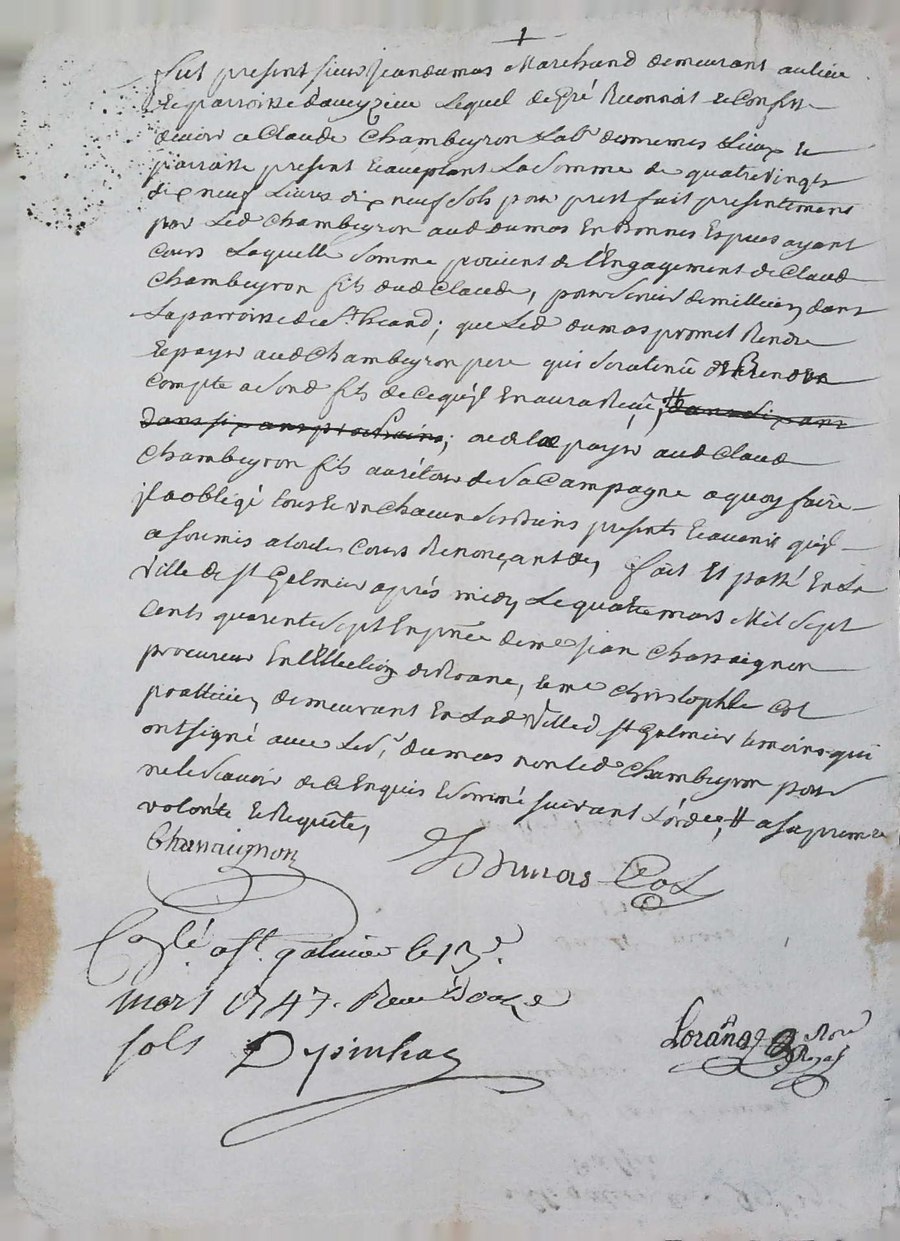 fut present sieur Jean dumas Marchand demeurant au lieu
et parroisse d'aveyzieu Lequel de gré Reconnoit et Confesse
devoir a Claude Chambeyron Labr du mesmes Lieux et
parroisse present et acceptant La somme de quatrevingts
dix neuf Livres dix neuf sols pour prest fait presentement
par Led Chambeyron aud dumas En Bonnes Espèces ayant
cours Laquelle somme provient de L'Engagement de Claude
Chambeyron fils dud Claude, pour servir de millicien dans
La parroisse de St heand; que Led dumas promet Rendre
et payer aud Chambeyron pere qui sera tenu de Rendre
compte a sond fils de ce qu'il En aura Reçu, # dans six ans
dans six ans prochains; ou de le payer aud Claude
Chambeyron fils au rétour de sa Campagne a quoy faire
il a obligé tous et un chacun ses Biens presents et avenir qu'il
a soumis a toutes Cours Renonçant &c, fait Et passé En La
ville de st Galmier après midy Le quatre mars Mil Sept
cents quarente sept En pnce de me Jean Chassaignon
procureur En l'Election de Roane, et me Christophle Col
pratticien demeurant En Lad ville de st Galmier temoins qui
ont signé avec Led sr dumas non led Chambeyron pour
ne le scavoir de ce Enquis et sommé suivant L'ordce, # a sa premiere
volonté et Requête,
Chassaignon
J Dumas Col
Conlé a st galmier le 13e
mars 1747. Reçu douze
sols Depinhac
Lorange Nore
Royal